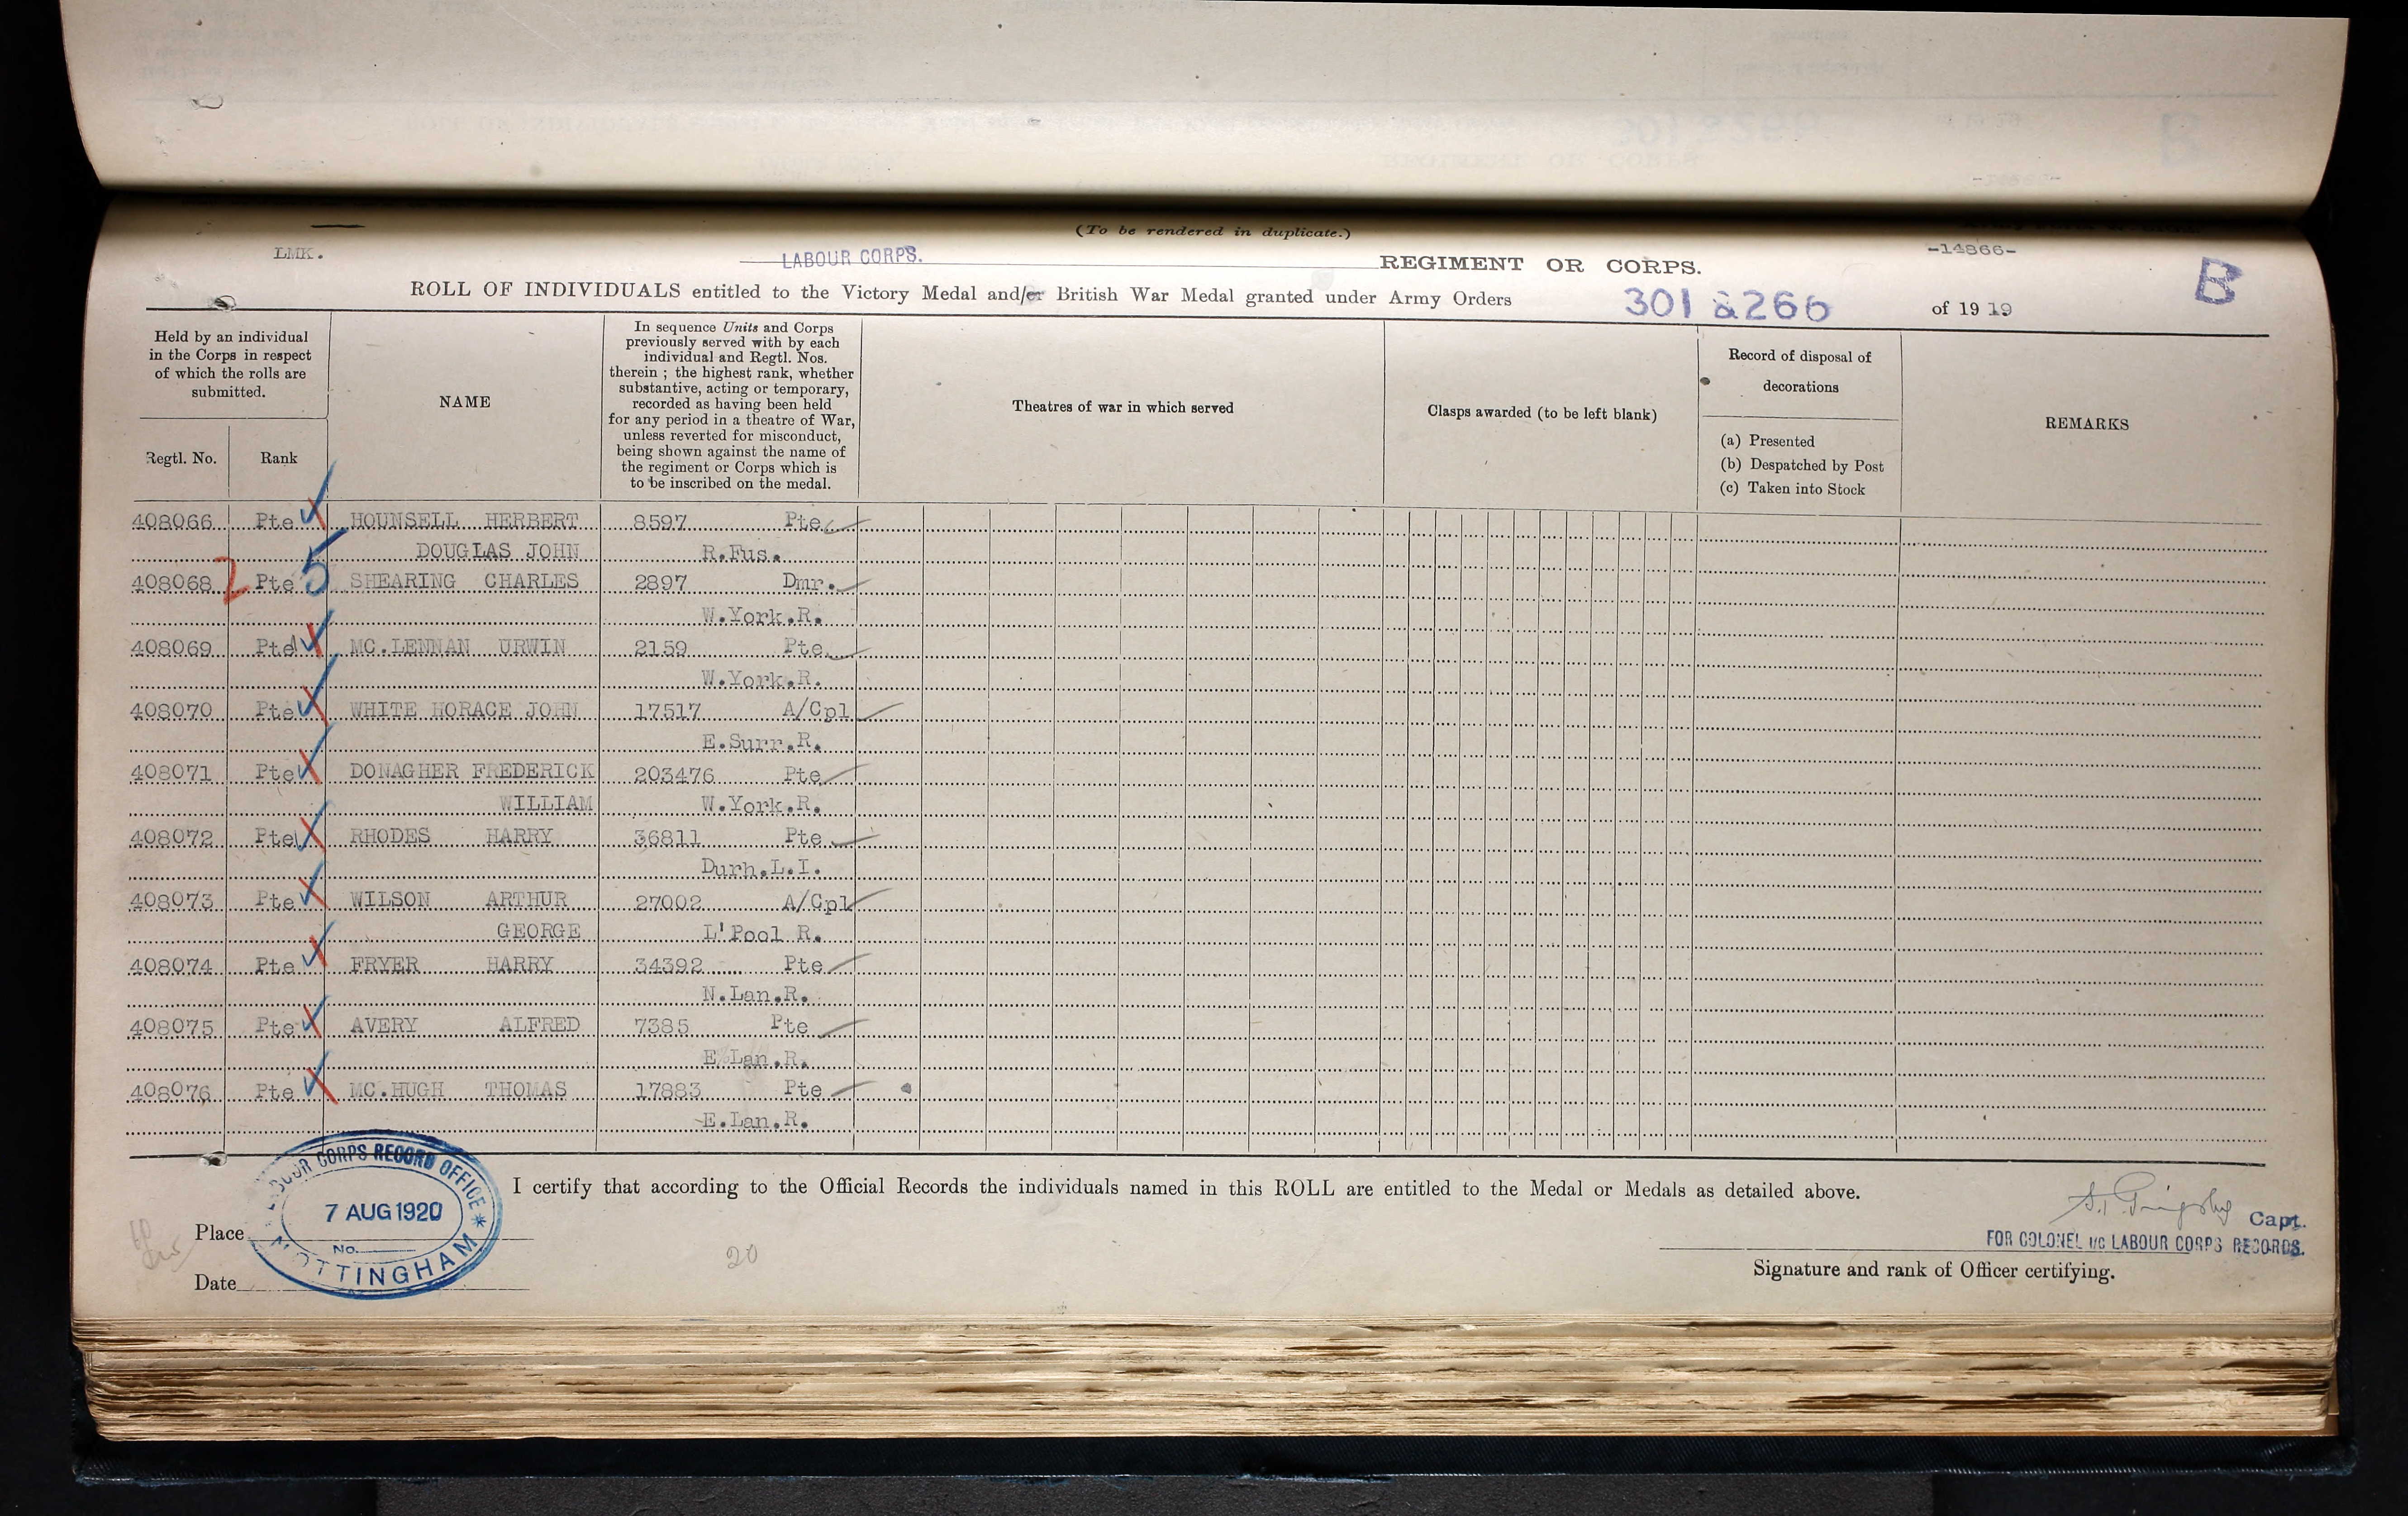 (To be rendered in duplicate.)
LMK.
LABOUR CORPS. REGIMENT OR CORPS.
-14866-
B
ROLL OF INDIVIDUALS entitled to the Victory Medal and/or British War Medal granted under Army Orders 301 & 266 of 1919
Held by an individual
in the Corps in respect
of which the rolls are
submitted.
Regtl. No. Rank
NAME
In sequence Units and Corps
previously served with by each
individual and Regtl. Nos.
therein ; the highest rank, whether
substantive, acting or temporary,
recorded as having been held
for any period in a theatre of War,
unless reverted for misconduct,
being shown against the name of
the regiment or Corps which is
to be inscribed on the medal.
Theatres of war in which served
Clasps awarded (to be left blank)
Record of disposal of
decorations
(a) Presented
(b) Despatched by Post
(c) Taken into Stock
REMARKS
408066 Pte HOUNSELL HERBERT 8597 Pte
DOUGLAS JOHN R.Fus.
408068 2 Pte 5 SHEARING CHARLES 2897 Dmr.
W.York.R.
408069 Pte MC.LENNAN URWIN 2159 Pte
W.York.R.
408070 Pte WHITE HORACE JOHN 17517 A/Cpl
E.Surr.R.
408071 Pte DONAGHER FREDERICK 203476 Pte
WILLIAM W.York.R.
408072 Pte RHODES HARRY 36811 Pte
Durh.L.I.
408073 Pte WILSON ARTHUR 27002 A/Cpl
GEORGE L'Pool R.
408074 Pte FRYER HARRY 34392 Pte
N.Lan.R.
408075 Pte AVERY ALFRED 7385 Pte
E.Lan.R.
408076 Pte MC.HUGH THOMAS 17883 Pte
E.Lan.R.
LABOUR CORPS RECORD OFFICE
7 AUG 1920
No.
NOTTINGHAM
I certify that according to the Official Records the individuals named in this ROLL are entitled to the Medal or Medals as detailed above.
Place
Date
20
Capt.
FOR COLONEL i/c LABOUR CORPS RECORDS.
Signature and rank of Officer certifying.